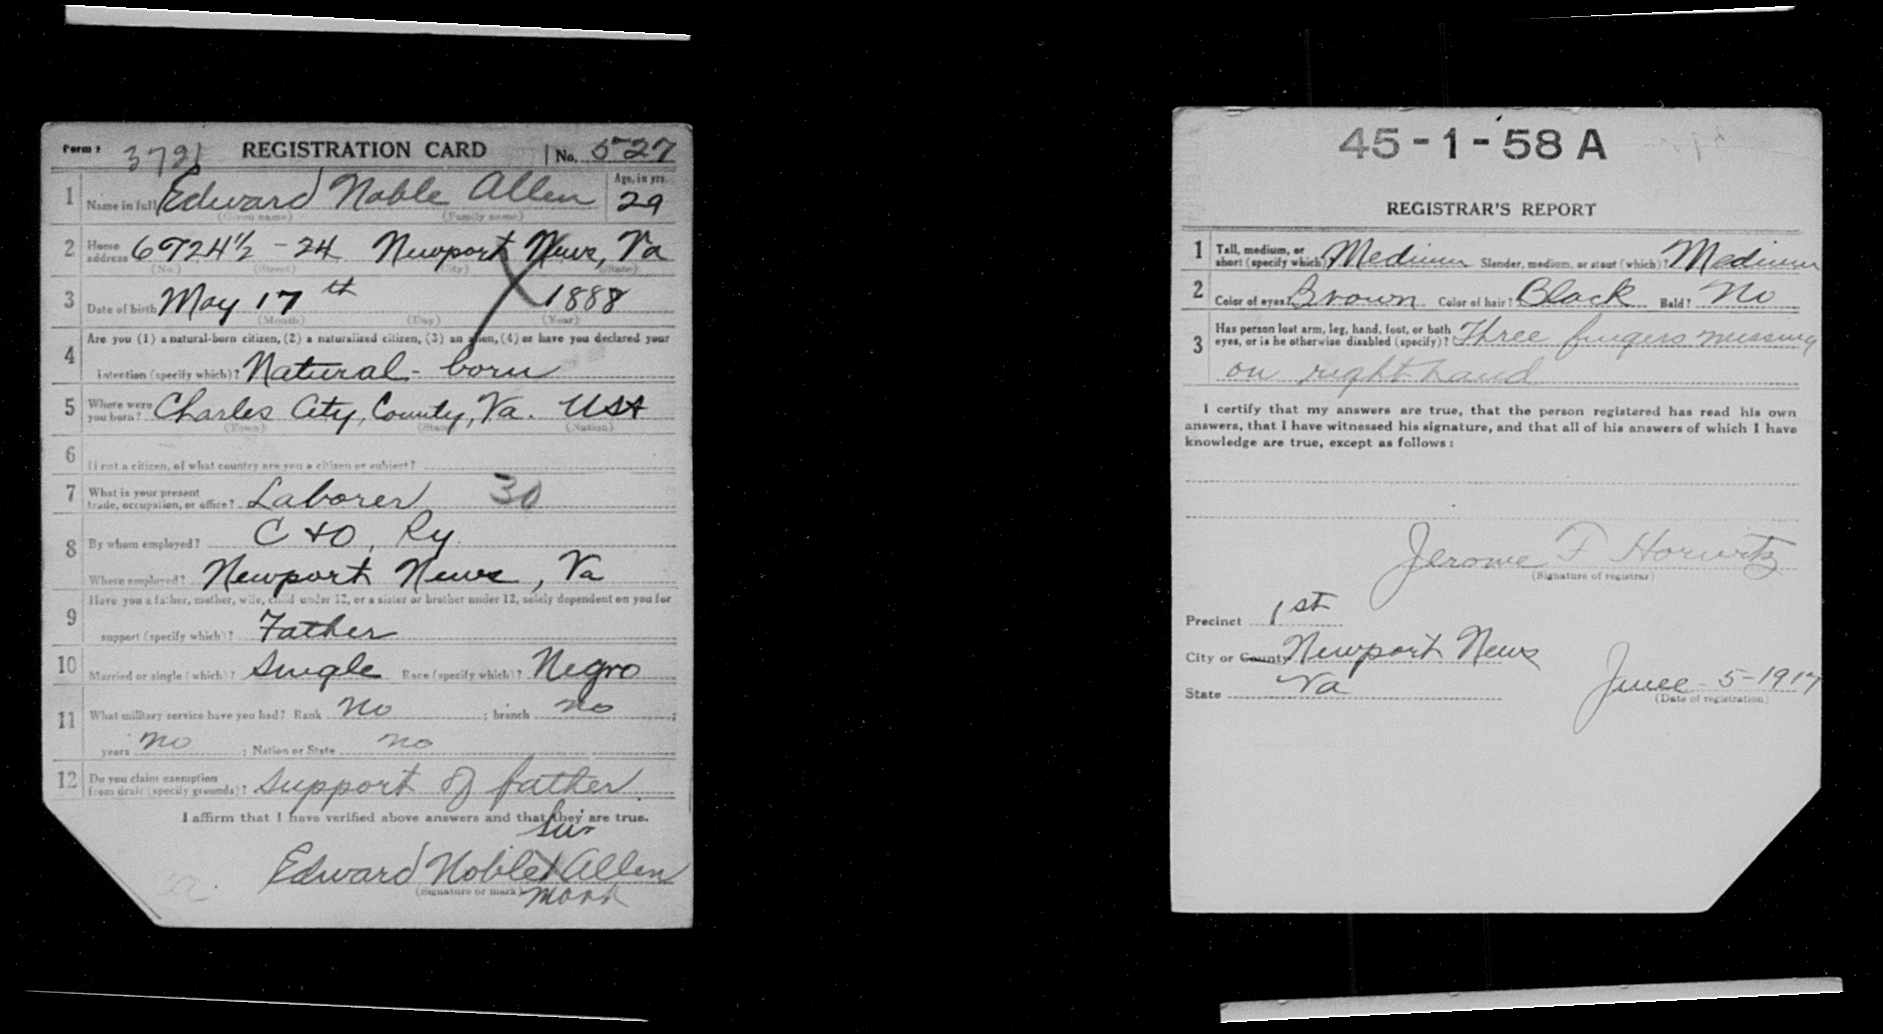 Form 1 3721 REGISTRATION CARD No. 527
1 Name in full Edward Noble Allen Age, in yrs. 29
(Given name) (Family name)
2 Home address 6924½ - 24 Newport News, Va
(No.) (Street) (City) (State)
3 Date of birth May 17th 1888
(Month) (Day) (Year)
4 Are you (1) a natural-born citizen, (2) a naturalized citizen, (3) an alien, (4) or have you declared your
intention (specify which)? Natural-born
5 Where were you born? Charles City, County, Va. USA
(Town) (State) (Nation)
6 If not a citizen, of what country are you a citizen or subject?
7 What is your present trade, occupation, or office? Laborer 30
8 By whom employed? C + O, Ry.
Where employed? Newport News, Va
9 Have you a father, mother, wife, child under 12, or a sister or brother under 12, solely dependent on you for
support (specify which)? Father
10 Married or single (which)? Single Race (specify which)? Negro
11 What military service have you had? Rank No ; branch No ;
years No ; Nation or State No
12 Do you claim exemption from draft (specify grounds)? Support of father
I affirm that I have verified above answers and that they are true.
his
Edward Noble X Allen
(Signature or mark) mark
45-1-58 A
REGISTRAR'S REPORT
1 Tall, medium, or short (specify which)? Medium Slender, medium, or stout (which)? Medium
2 Color of eyes? Brown Color of hair? Black Bald? No
3 Has person lost arm, leg, hand, foot, or both
eyes, or is he otherwise disabled (specify)? Three fingers missing
on right hand
I certify that my answers are true, that the person registered has read his own
answers, that I have witnessed his signature, and that all of his answers of which I have
knowledge are true, except as follows:
Jerome F Horwitz
(Signature of registrar)
Precinct 1st
City or County Newport News
State Va
June - 5 - 1917
(Date of registration)